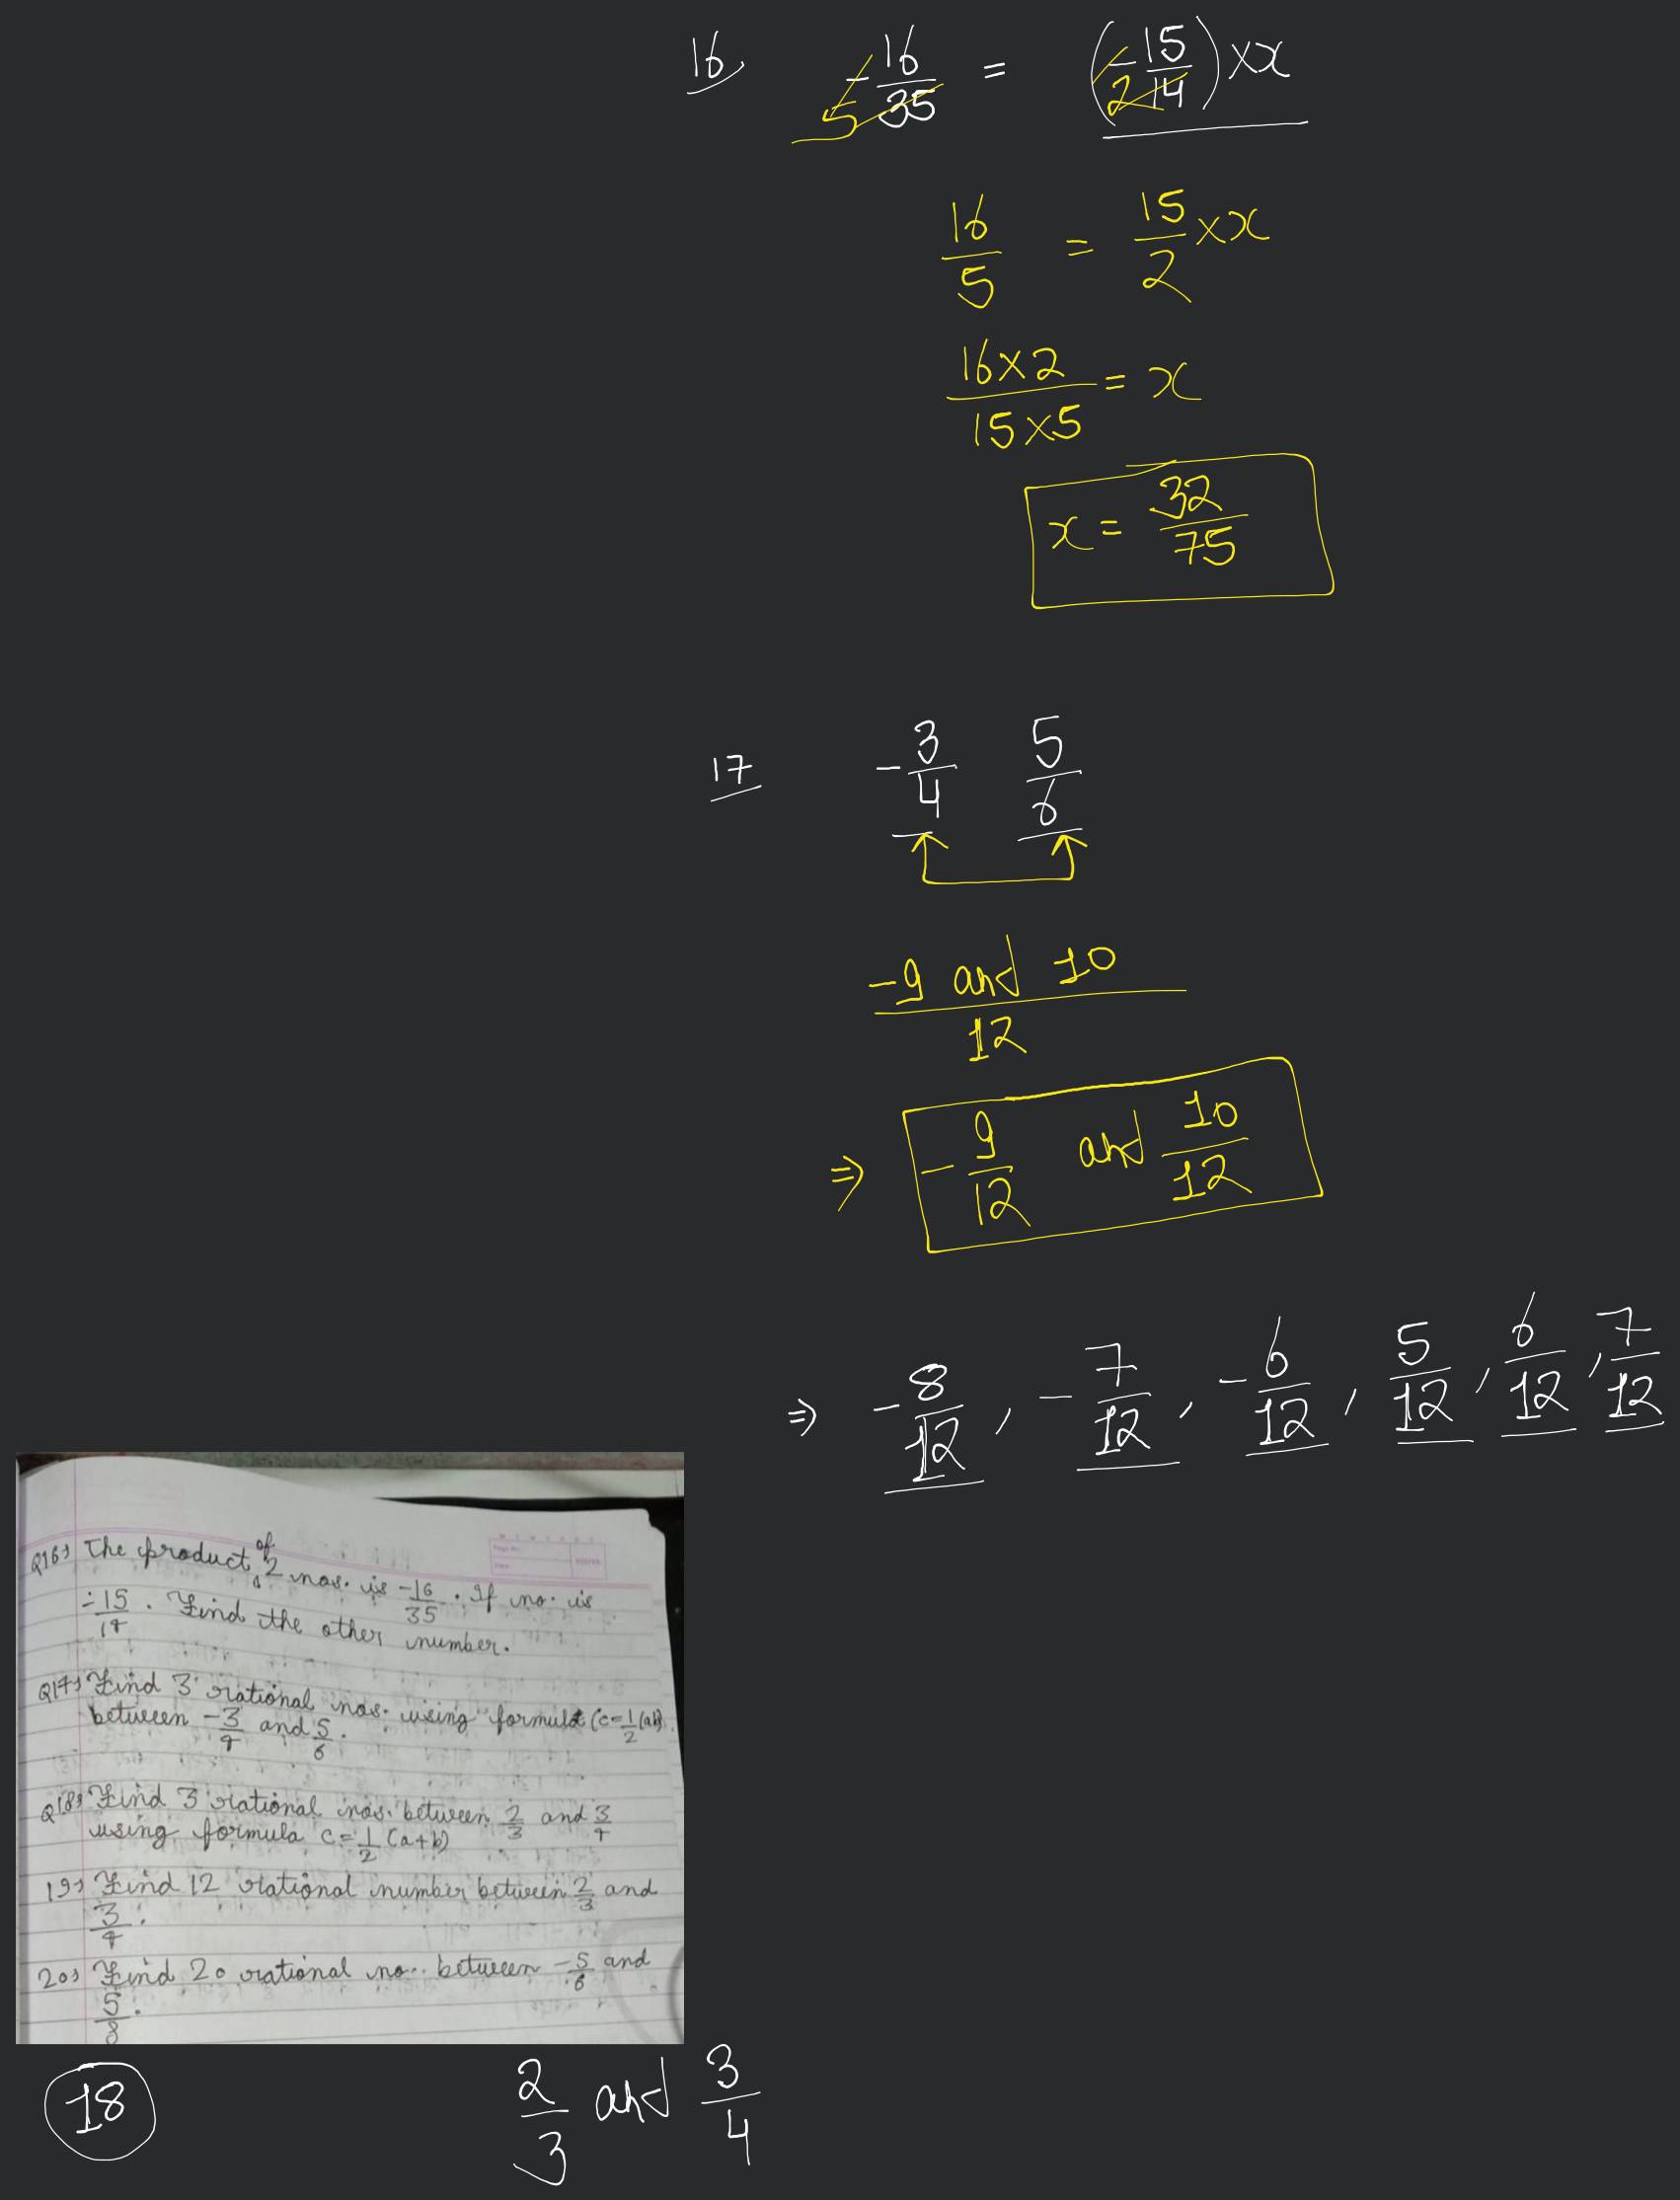 16, -16/35 = (-15/14) × x
5 2
16/5 = 15/2 × x
16×2/15×5 = x
x = 32/75
17 -3/4 5/6
-9 and 10
12
⇒ -9/12 and 10/12
⇒ -8/12, -7/12, -6/12, 5/12, 6/12, 7/12
Q16) The product of 2 nos. is -16/35. If no. is
-15/14. Find the other number.
Q17) Find 3 rational nos. using formula (c=1/2(ab)
between -3/4 and 5/6.
Q18) Find 3 rational nos. between 2/3 and 3/4
using formula c=1/2(a+b)
19) Find 12 rational number between 2/3 and
3/4.
20) Find 20 rational no.. between -5/6 and
5/8.
18 2/3 and 3/4